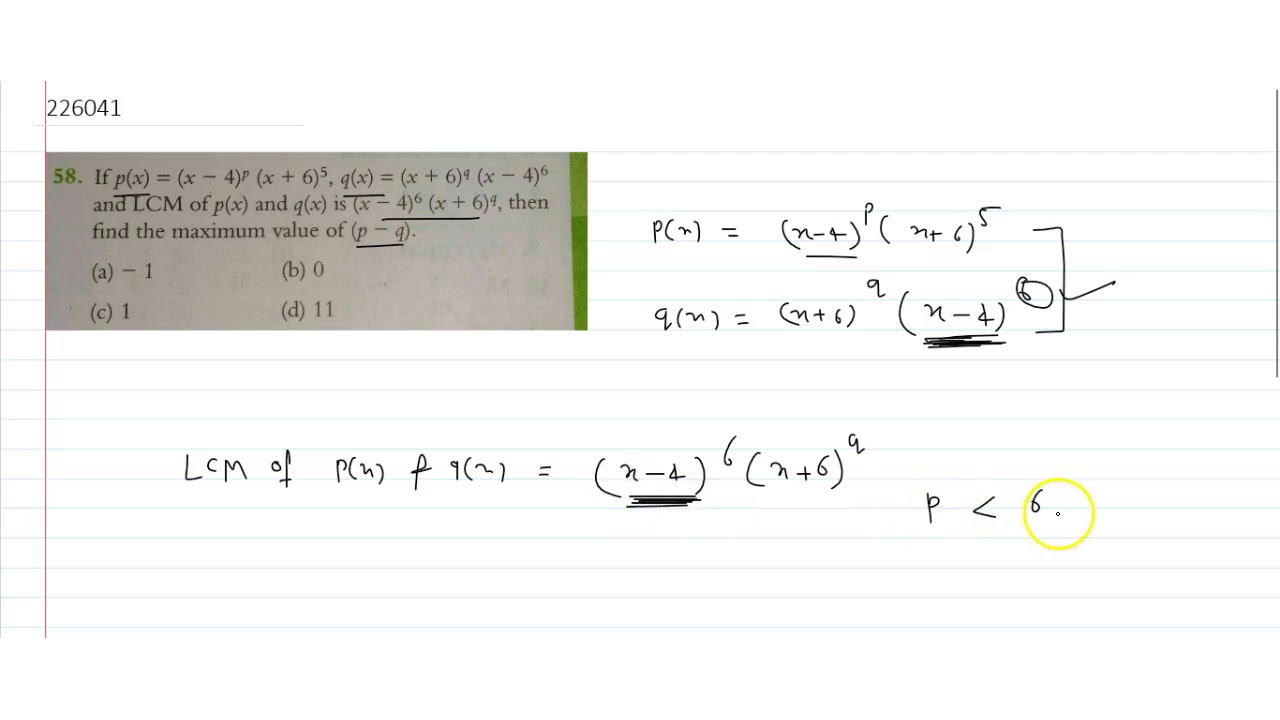 226041
58. If p(x) = (x − 4)ᵖ (x + 6)⁵, q(x) = (x + 6)^q (x − 4)⁶
and LCM of p(x) and q(x) is (x − 4)⁶ (x + 6)^q, then
find the maximum value of (p − q).
(a) − 1 (b) 0
(c) 1 (d) 11
p(x) = (x−4)ᵖ (x+6)⁵
q(x) = (x+6)^q (x−4)⁶
LCM of p(x) & q(x) = (x−4)⁶ (x+6)^q
p < 6.